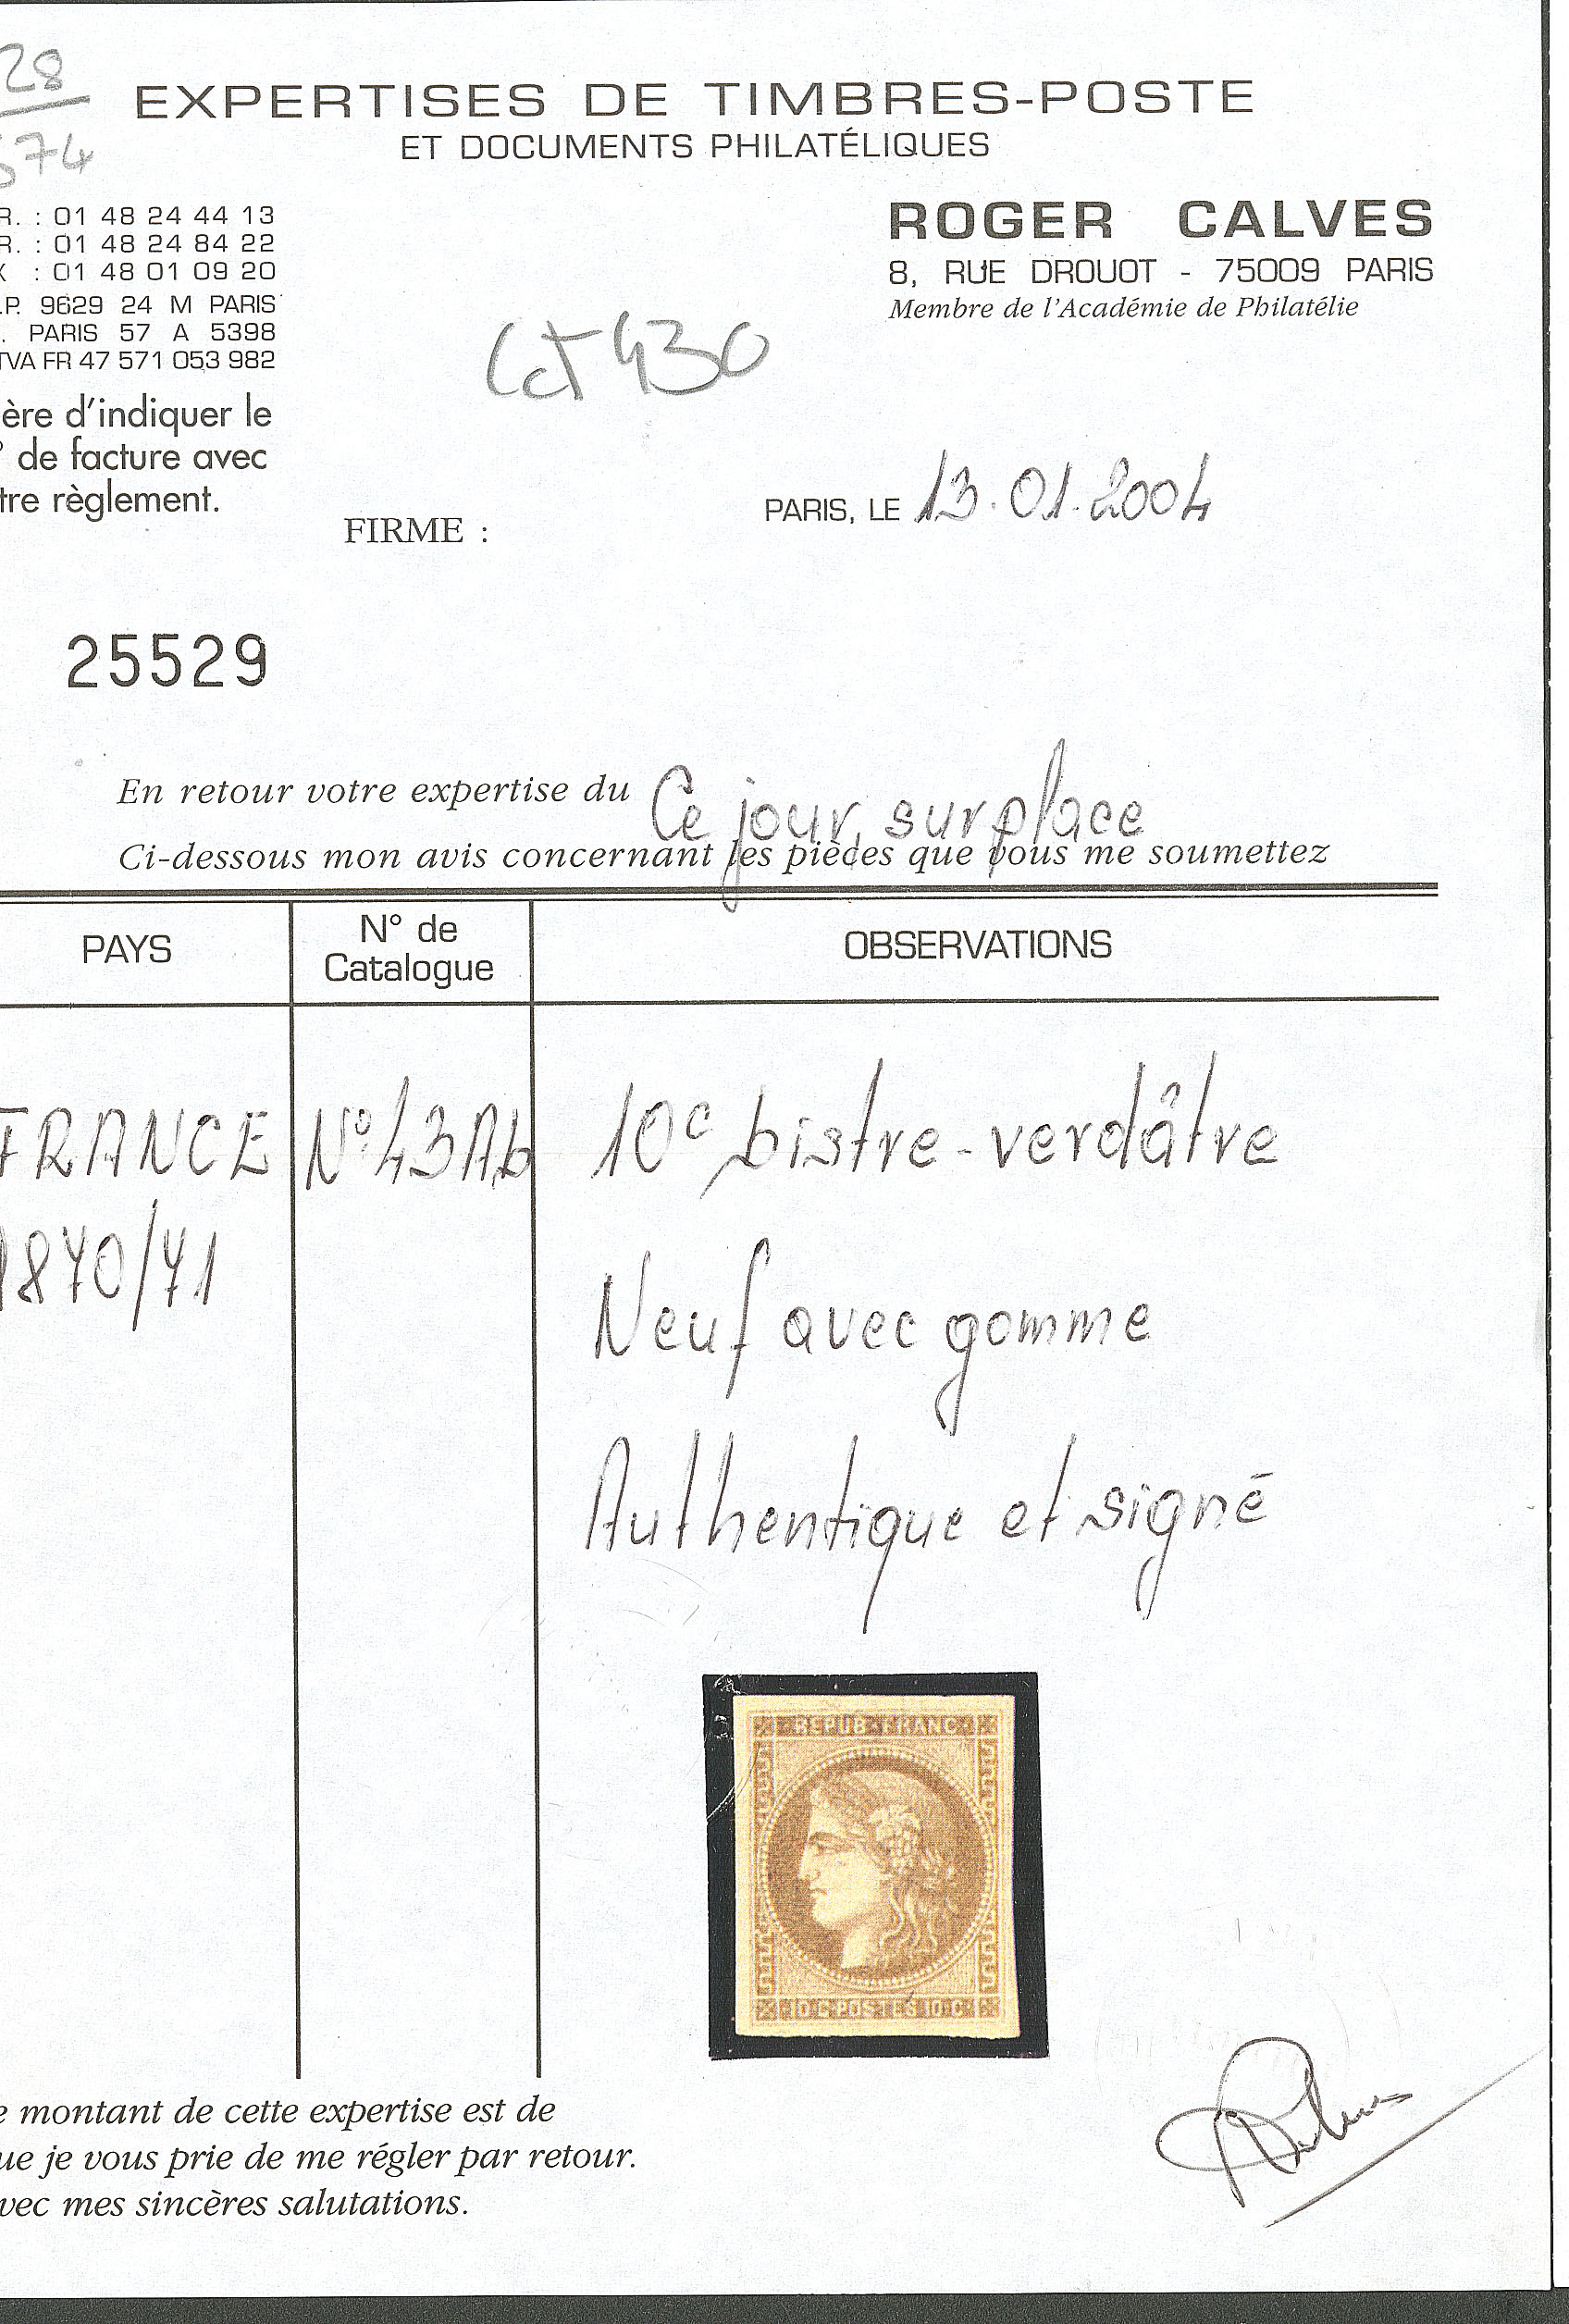 28
574
EXPERTISES DE TIMBRES-POSTE
ET DOCUMENTS PHILATÉLIQUES
R. : 01 48 24 44 13
R. : 01 48 24 84 22
X : 01 48 01 09 20
.P. 9629 24 M PARIS
. PARIS 57 A 5398
TVA FR 47 571 053 982
ROGER CALVES
8, RUE DROUOT - 75009 PARIS
Membre de l'Académie de Philatélie
Lot 430
ère d'indiquer le
° de facture avec
tre règlement.
PARIS, LE 13.01.2004
FIRME :
25529
En retour votre expertise du Ce jour, sur place
Ci-dessous mon avis concernant les pièces que vous me soumettez
PAYS
N° de
Catalogue
OBSERVATIONS
FRANCE N° 43Ab 10c bistre-verdâtre
1870/71
Neuf avec gomme
Authentique et signé
REPUB·FRANC·
10·C·POSTES·10·C·
e montant de cette expertise est de
ue je vous prie de me régler par retour.
vec mes sincères salutations.